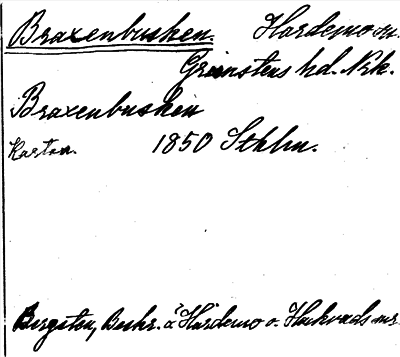 Braxenbusken. Hardemo sn.
Grimstens hd. Nrk.
Braxenbusken
Kartan. 1850 Sthlm.
Bergsten, Beskr. ö. Hardemo o. Hackvads snr